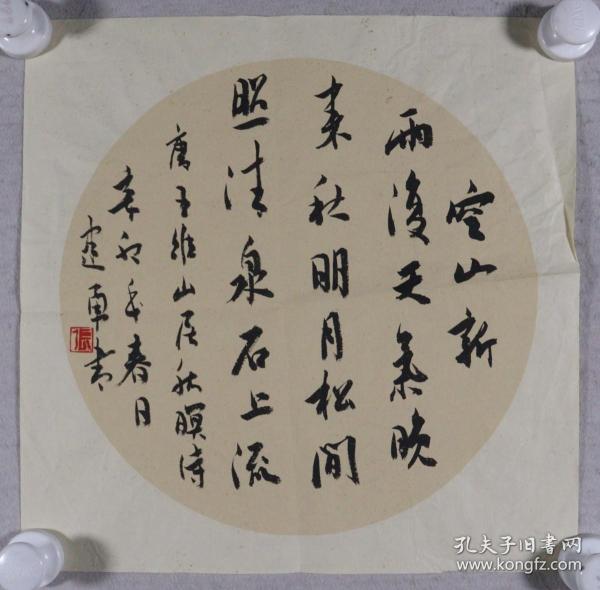 空山新
雨後天氣晚
來秋明月松間
照清泉石上流
唐王維山居秋暝詩
辛卯年春日
建軍書
張
孔夫子旧书网
www.kongfz.com